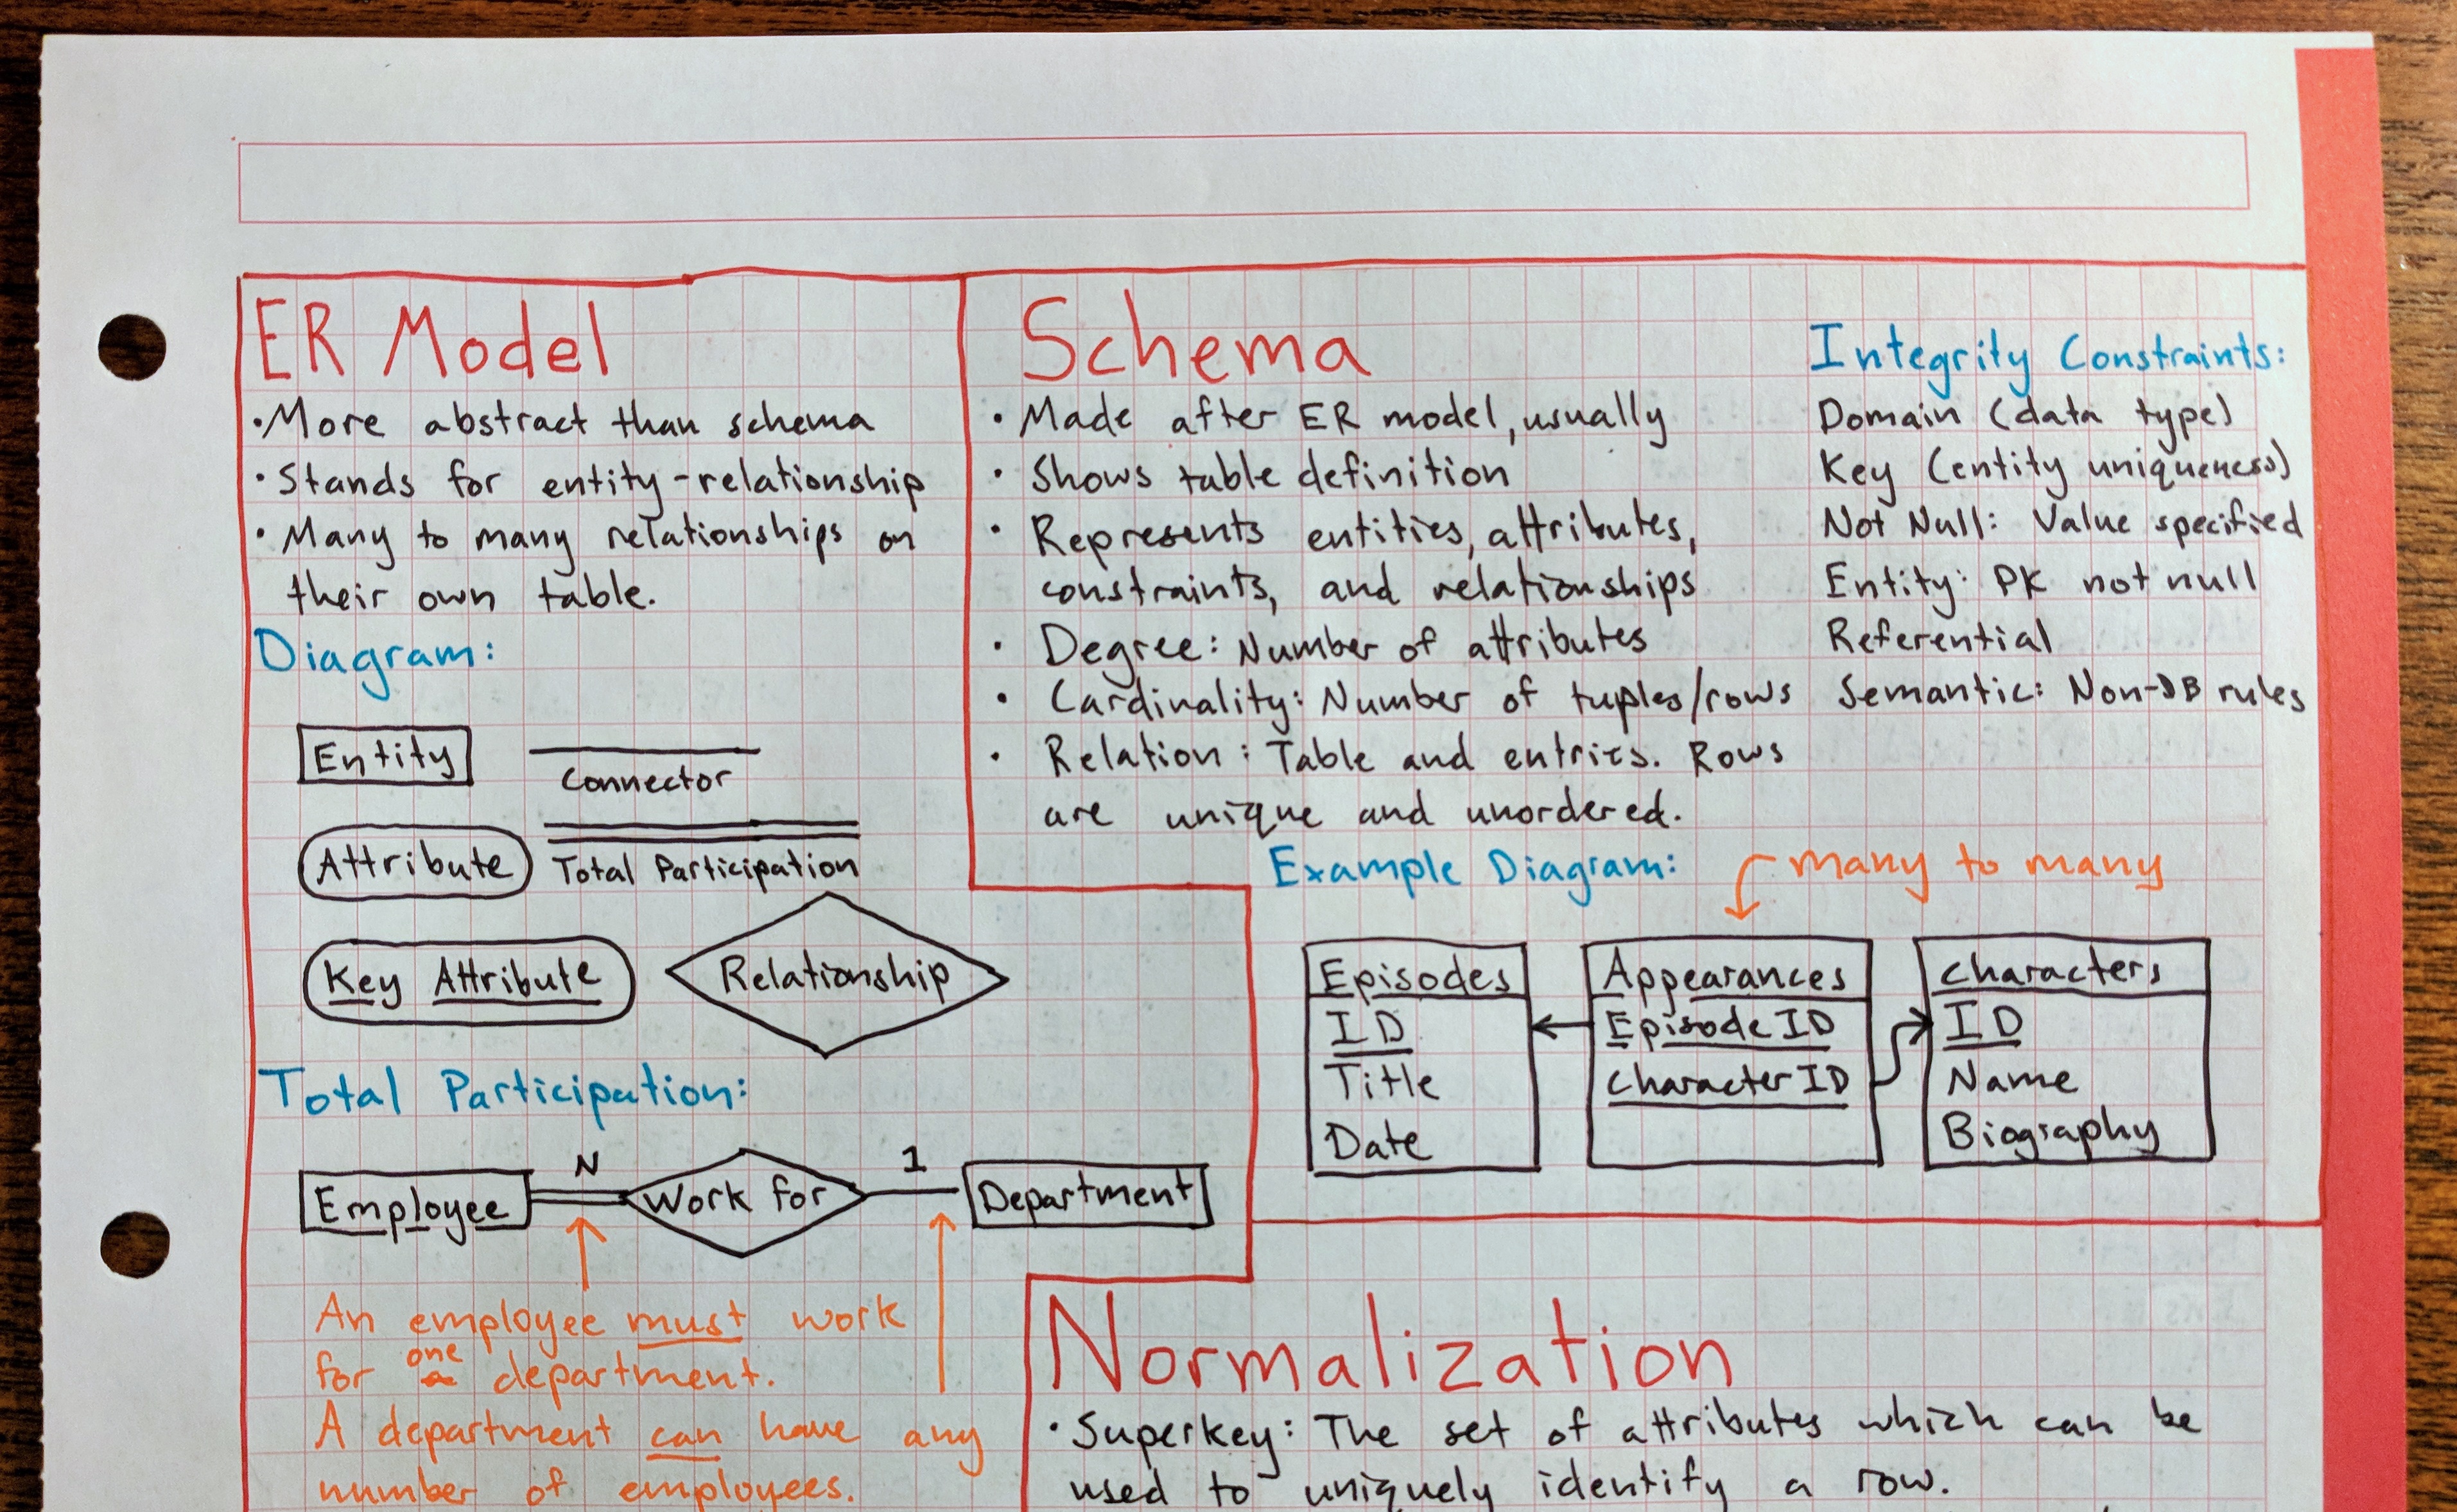 ER Model
•More abstract than schema
•Stands for entity-relationship
•Many to many relationships on
their own table.
Diagram:
Entity
Connector
Attribute
Total Participation
Key Attribute
Relationship
Total Participation:
Employee
N
Work for
1
Department
An employee must work
for one department.
A department can have any
number of employees.
Schema
•Made after ER model, usually
•Shows table definition
•Represents entities, attributes,
constraints, and relationships
•Degree: Number of attributes
•Cardinality: Number of tuples/rows
•Relation: Table and entries. Rows
are unique and unordered.
Integrity Constraints:
Domain (data type)
Key (entity uniqueness)
Not Null: Value specified
Entity: PK not null
Referential
Semantic: Non-DB rules
Example Diagram:
many to many
Episodes
ID
Title
Date
Appearances
Episode ID
Character ID
Characters
ID
Name
Biography
Normalization
•Superkey: The set of attributes which can be
used to uniquely identify a row.